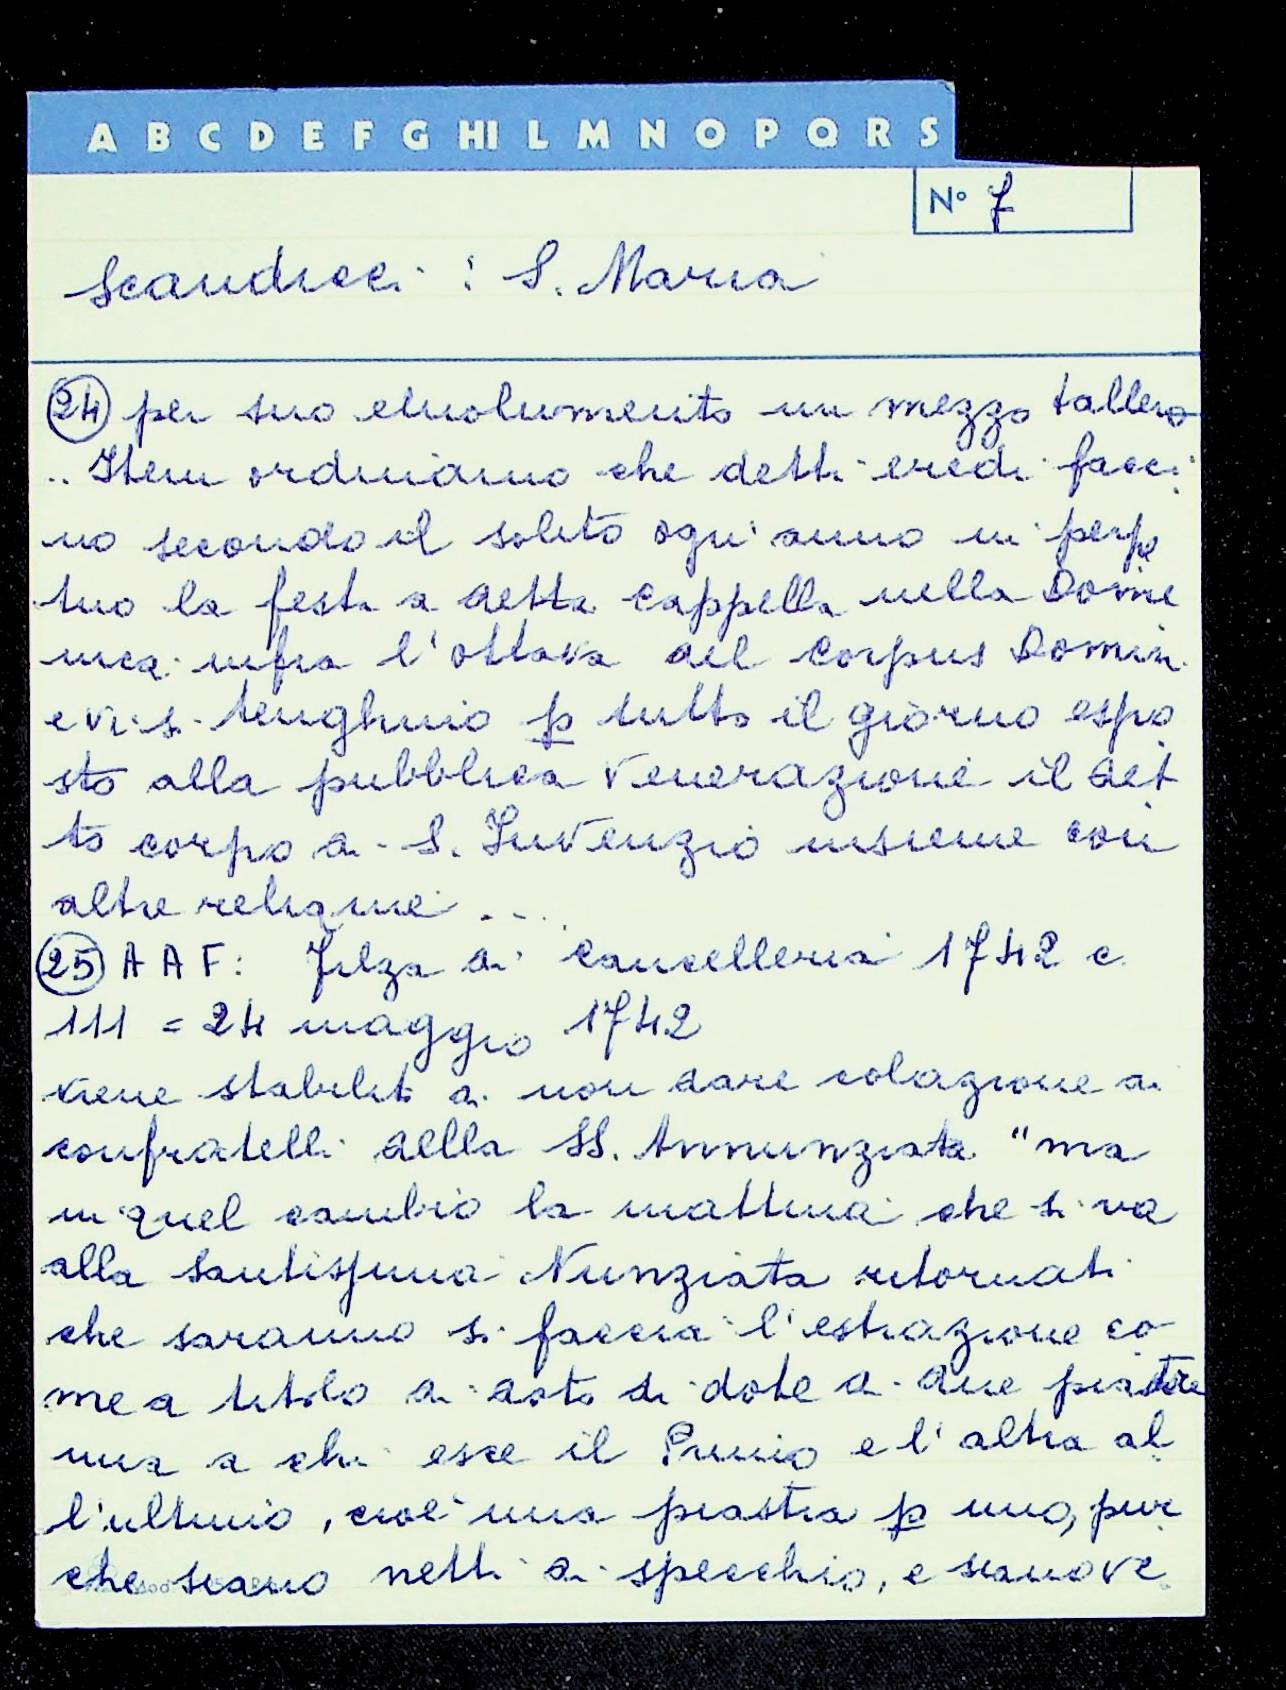 A B C D E F G HI L M N O P Q R S
N° 7
Scandicci : S. Maria
24 per suo emolumento un mezzo tallero
.. Item ordiniamo che detti eredi facci
no secondo il solito ogni anno in perpe
tuo la festa a detta cappella nella Dome
nica infra l'ottava del Corpus Domin.
e vi si tenghino p tutto il giorno espo
sto alla pubblica venerazione il det
to corpo di S. Iuvenzio insieme con
altre reliquie ...
25 A A F: Filza di cancelleria 1742 c.
111 = 24 maggio 1742
viene stabilito di non dare colazione ai
confratelli della SS. Annunziata "ma
in quel cambio la mattina che si va
alla santissima Nunziata ritornati
che saranno si faccia l'estrazione co
me a titolo di dote di due piastre
una a chi esce il Primo e l'altra al
l'ultimo, cioè una piastra p uno, pur
che siano netti di specchio, e siano ve